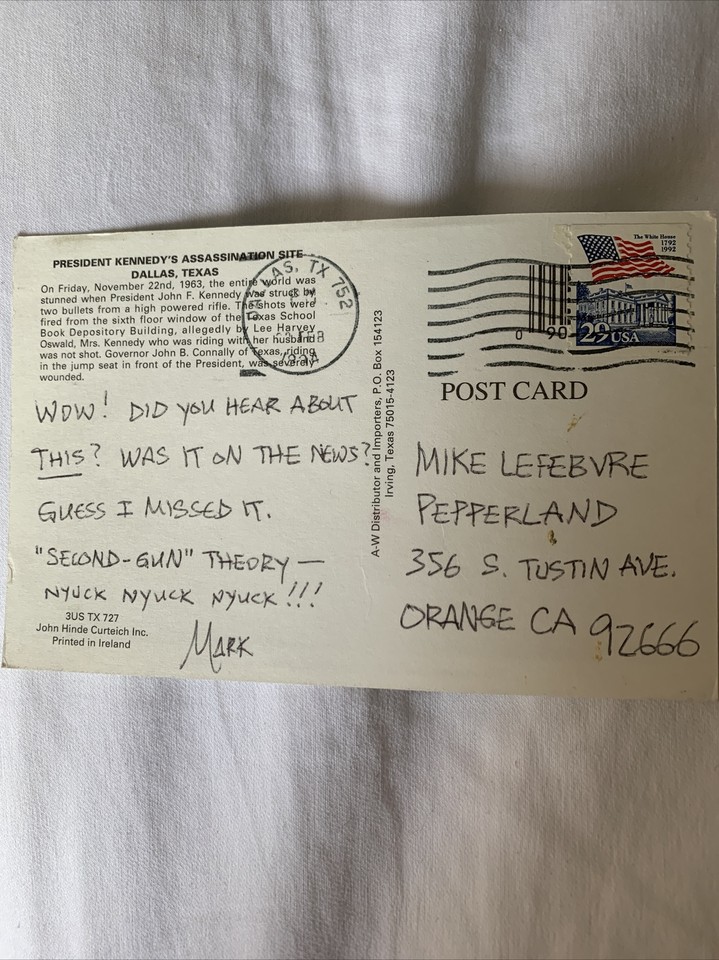 PRESIDENT KENNEDY'S ASSASSINATION SITE
DALLAS, TEXAS
On Friday, November 22nd, 1963, the entire world was
stunned when President John F. Kennedy was struck by
two bullets from a high powered rifle. The shots were
fired from the sixth floor window of the Texas School
Book Depository Building, allegedly by Lee Harvey
Oswald, Mrs. Kennedy who was riding with her husband
was not shot. Governor John B. Connally of Texas, riding
in the jump seat in front of the President, was severely
wounded.
WOW! DID YOU HEAR ABOUT
THIS? WAS IT ON THE NEWS?
GUESS I MISSED IT.
"SECOND-GUN" THEORY —
NYUCK NYUCK NYUCK!!!
MARK
3US TX 727
John Hinde Curteich Inc.
Printed in Ireland
A-W Distributor and Importers, P.O. Box 154123
Irving, Texas 75015-4123
TX 752
FEB
The White House
1792
1992
29USA
0 90
POST CARD
MIKE LEFEBVRE
PEPPERLAND
356 S. TUSTIN AVE.
ORANGE CA 92666